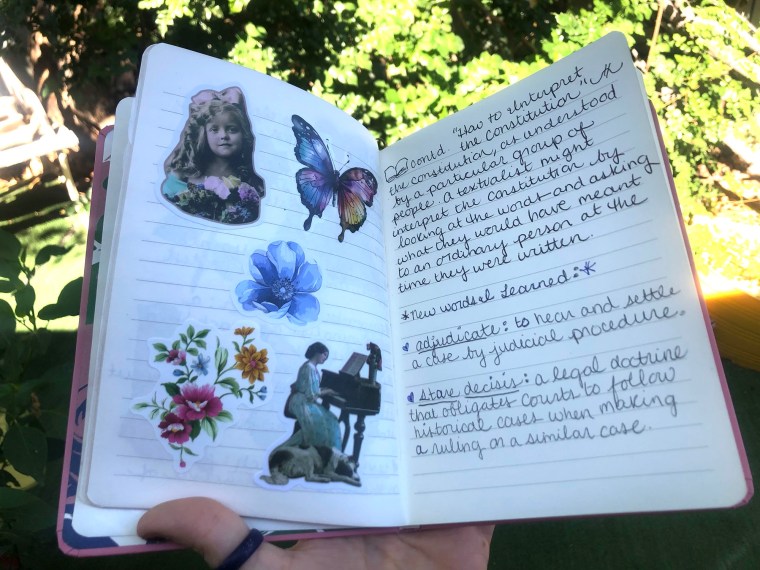 contd. "How to Interpret
the Constitution," ...
the constitution, as understood
by a particular group of
people. A textualist might
interpret the constitution by
looking at the words and asking
what they would have meant
to an ordinary person at the
time they were written.
*New words I Learned:*
adjudicate: to hear and settle
a case by judicial procedure.
stare decisis: a legal doctrine
that obligates courts to follow
historical cases when making
a ruling on a similar case.